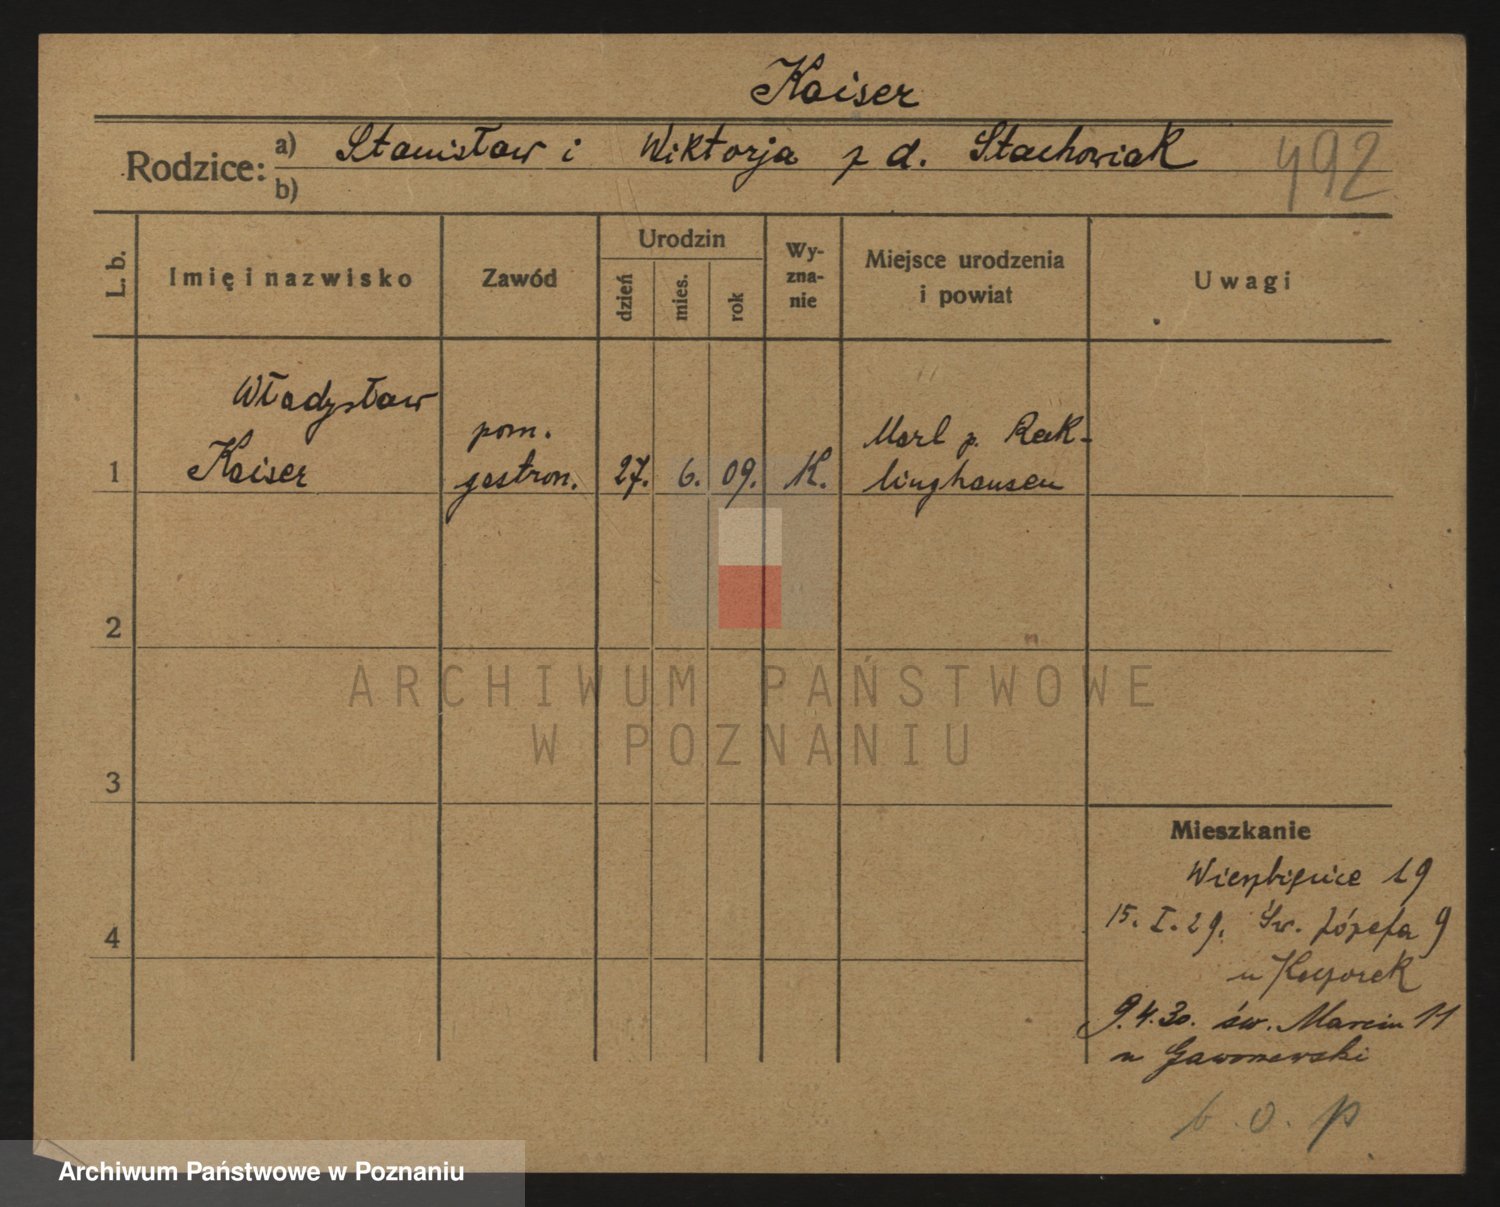 Kaiser
Rodzice: a) Stanisław i Wiktorja z d. Stachowiak 492
b)
L. b. Imię i nazwisko Zawód Urodzin dzień mies. rok Wy-zna-nie Miejsce urodzenia i powiat Uwagi
Władysław
pom. Marl p. Rek-
1 Kaiser gastron. 27. 6. 09. K. linghausen
2
ARCHIWUM PAŃSTWOWE
W POZNANIU
3
Mieszkanie
Wierzbięcice 19
4 15. I. 29. Św. Józefa 9
u
9.4.30. św. Marcin 11
u
b. o. p
Archiwum Państwowe w Poznaniu